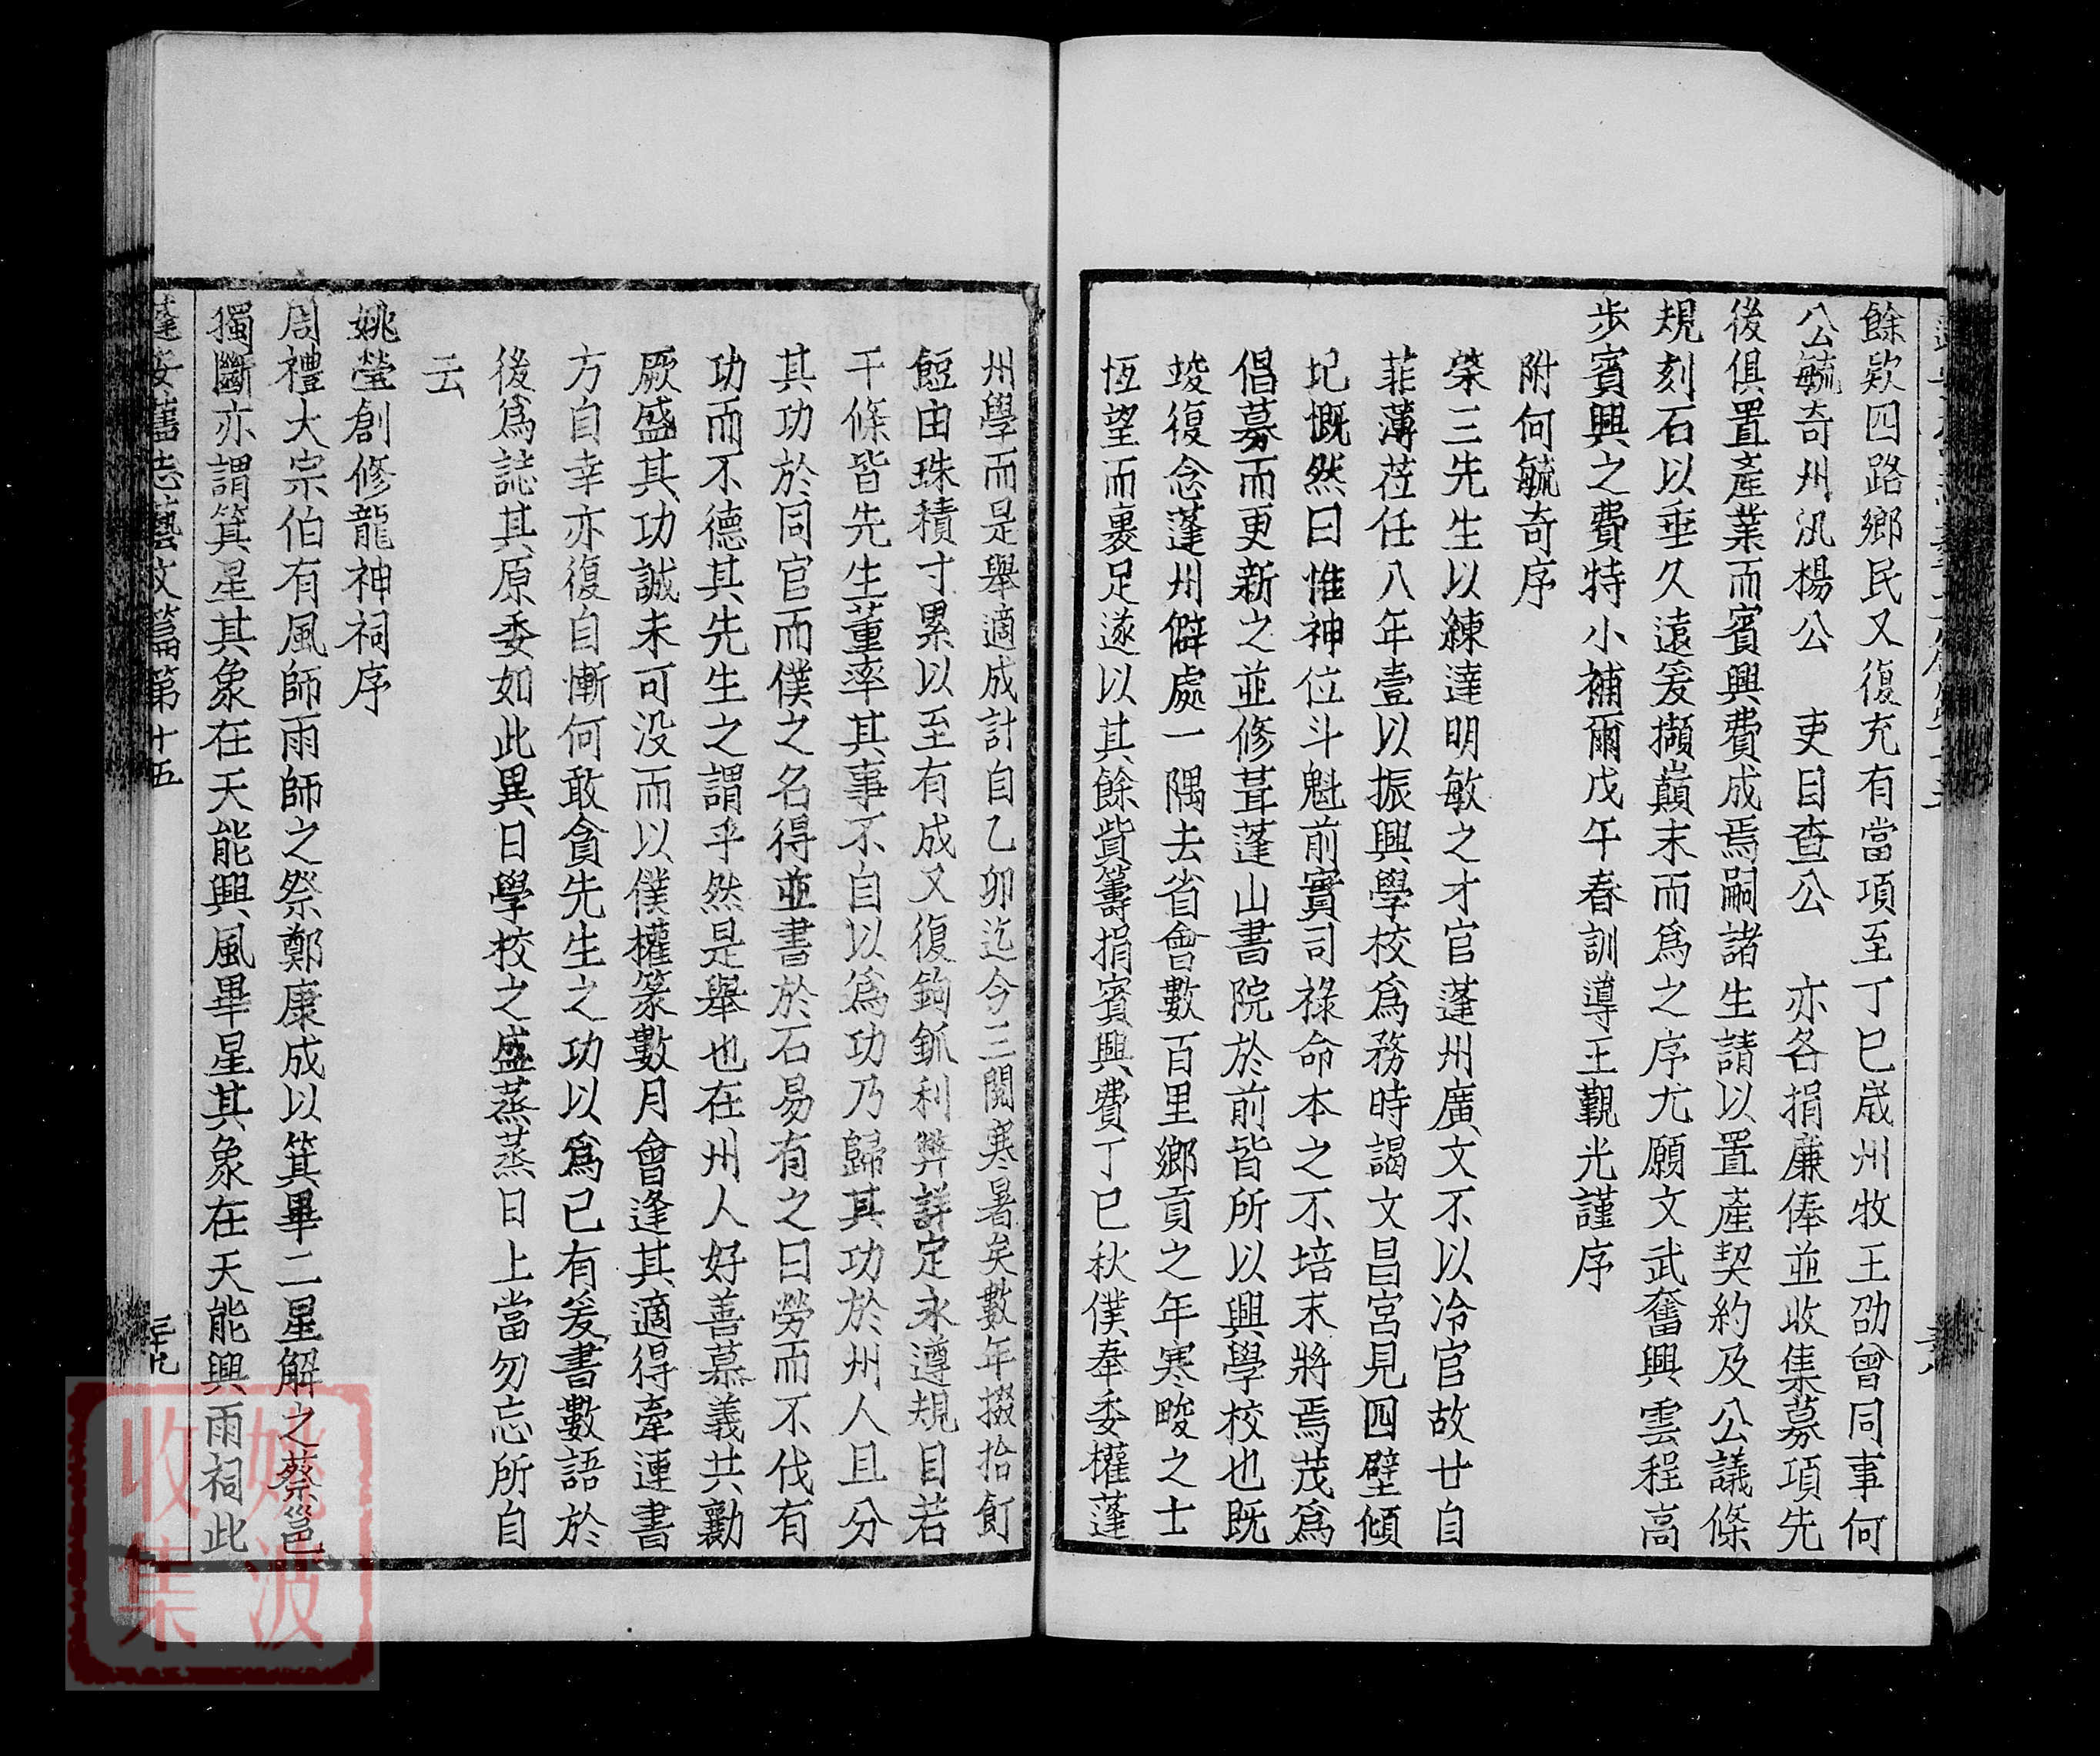 餘欵四路鄉民又復充有當項至丁巳嵗州牧王劭曾同事何
公毓奇州汛楊公　吏目查公　亦各捐廉俸並收集募項先
後俱置產業而賓興費成焉嗣諸生請以置產契約及公議條
規刻石以垂久遠爰擷巔末而爲之序尤願文武奮興雲程高
步賓興之費特小補爾戊午春訓導王觀光謹序
附何毓奇序
榮三先生以練達明敏之才官蓬州廣文不以冷官故廿自
菲薄莅任八年壹以振興學校爲務時謁文昌宮見四壁傾
圮慨然曰惟神位斗魁前實司祿命本之不培末將焉茂爲
倡募而更新之並修葺蓬山書院於前皆所以興學校也既
竣復念蓬州僻處一隅去省會數百里鄉貢之年寒畯之士
恆望而裹足遂以其餘貲籌捐賓興費丁巳秋僕奉委權蓬
州學而是舉適成計自乙卯迄今三閱寒暑矣數年掇拾飣
餖由珠積寸累以至有成又復鉤鈲利弊詳定永遵規目若
干條皆先生董率其事不自以爲功乃歸其功於州人且分
其功於同官而僕之名得並書於石易有之曰勞而不伐有
功而不德其先生之謂乎然是舉也在州人好善慕義共勷
厥盛其功誠未可没而以僕權篆數月會逢其適得牽連書
方自幸亦復自慚何敢貪先生之功以爲己有爰書數語於
後爲誌其原委如此異日學校之盛蒸蒸日上當勿忘所自
云
姚瑩創修龍神祠序
周禮大宗伯有風師雨師之祭鄭康成以箕畢二星解之蔡邕
獨斷亦謂箕星其象在天能興風畢星其象在天能興雨祠此
蓬安舊志藝文篇第十五　三十九
姚波
收集